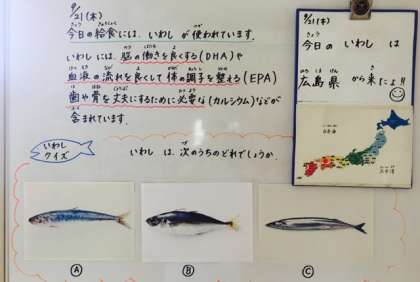 9/21(木)
今日の給食には、いわしが使われています。
いわしには、脳の働きを良くする(DHA)や
血液の流れを良くして体の調子を整える(EPA)
歯や骨を丈夫にするために必要な(カルシウム)などが
含まれています。
いわし
クイズ
いわしは、次のうちのどれでしょうか。
Ⓐ
Ⓑ
Ⓒ
9/21(木)
今日のいわしは
広島県から来たよ!!
日本海
太平洋